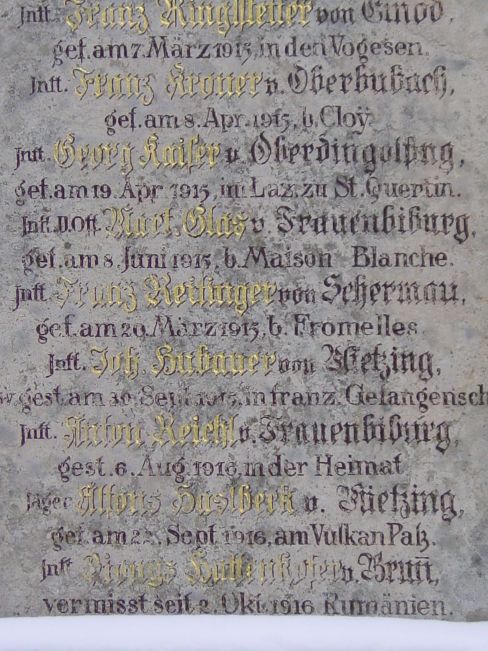 Jnft. Franz Ringlstetter von Gmod,
gef. am 7. März 1915, in den Vogesen.
Jnft. Franz Kroner v. Oberbubach,
gef. am 8. Apr. 1915, b. Cloÿ
Jnft. Georg Kaiser v. Oberdingolfing,
gef. am 19. Apr. 1915, im Laz. zu St. Quertin.
Jnft. U.Off. Mart. Glas v. Frauenbiburg,
gef. am 8. Juni 1915, b. Maison Blanche.
Jnft. Franz Reitinger von Schermau,
gef. am 29. März 1915, b. Fromelles
Jnft. Joh. Hubauer von Mietzing,
gest. am 30. Sept. 1915, in franz. Gefangensch
Jnft. Anton Reichl v. Frauenbiburg,
gest. 6. Aug. 1916, in der Heimat
Jäger Alfons Haslbeck v. Mietzing,
gef. am 22. Sept. 1916, am Vulkan Paß.
Jnft Dionys v. Brun,
vermisst seit 2. Okt. 1916 Rumänien.